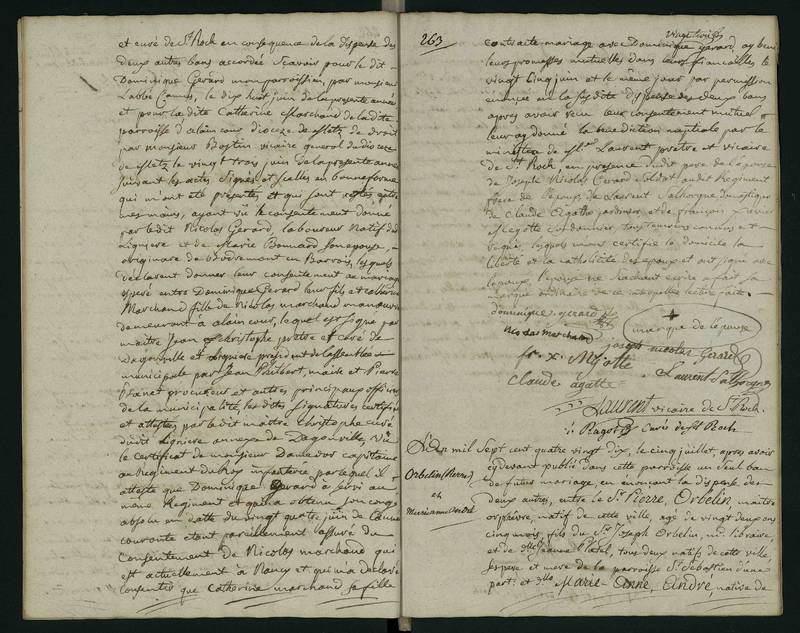 et curé de St Roch en consequence de la dispense des
deux autres bans accordée scavoir pour le dit
Dominique Gerard mon paroissien, par monsieur
l'abbé Camus, le dix huit juin de la presente année
et pour la dite Catherine Marchand de la dite
paroisse d'alaincour dioceze de Metz, de droit
par monsieur Bostin vicaire general du dioceze
de Metz le vingt trois juin de la presente année
suivant les actes signés et scellés en bonne forme
qui m'ont eté presentés et qui sont restés entre
mes mains, ayant vû le consentement donné
par le dit Nicolas Gerard, laboureur natif de
Ligniere et de Marie Bonnard son epouse,
originaire de en Barrois, lesquels
declarent donner leur consentement au mariage
esperé entre Dominique Gerard leur fils et Catherine
Marchand fille de Nicolas marchand manoeuvre
demeurant à alaincour, lequel est signé par
maitre Jean Christophe pretre et curé de
Dagonville et Ligniere president de l'assemblée
municipale par Jean Philbert, maire et Pierre
procureur et autres principaux officiers
de la municipalité, les dites signatures certifiées
et attestées par le dit maitre Christophe curé
dudit Ligniere annexe de Dagonville, vû
le certificat de monsieur capitaine
au Regiment du Roy infanterie par lequel il
atteste que Dominique Gerard a servi au
meme Regiment et qu'il a obtenu son congé
absolu en datte du vingt quatre juin de l'année
courante etant pareillement assuré du
Consentement de Nicolas marchand qui
est actuellement à Nancy et qui m'a declaré
consentir que Catherine marchand sa fille
263
contracte mariage avec Dominique Gerard, ay beni
leurs promesses mutuelles dans leurs fiancailles le
vingt cinq juin et le même jour par permission
enoncée en la susdite dispense des deux bans
après avoir reçu leur consentement mutuel
leur ay donné la benediction nuptiale par le
ministere de Mr. Laurent pretre et vicaire
de St Roch, en presence dudit pere de l'epouse
de Joseph Nicolas Gerard soldat audit Regiment
frere de l'epoux, de Laurent Salhorgne domestique
de Claude Agathe jardinier, et de françois Xavier
Mejotte cordonnier, tous temoins connus et
requis, lesquels m'ont certifié le domicile la
liberté et la catholicité des epoux et ont signé avec
l'epoux, l'epouse ne sachant ecrire a fait sa
marque ordinaire de ce interpellée lecture faite.
dominique gerard
+
marque de l'epouse
nicolas marchand
joseph nicolas Gerard
fr. x. Mejotte
Laurent Salhorgne
claude agatte
Laurent vicaire de St Roch.
Ragot Curé de St Roch
Orbelin (Pierre)
et
Marie anne André
L'an mil sept cent quatre vingt dix, le cinq juillet, après avoir
cydevant publié dans cette paroisse un seul ban
de futur mariage, en enonçant la dispense des
deux autres, entre le Sr. Pierre, Orbelin, maitre
orphevre, natif de cette ville, agé de vingt deux ans
cinq mois, fils du Sr. Joseph Orbelin, md. libraire,
et de dlle Jeanne Platel, tous deux natifs de cette ville,
ses pere et mere de la paroisse St Sebastien d'une
part; et Dlle Marie-Anne, André, native de